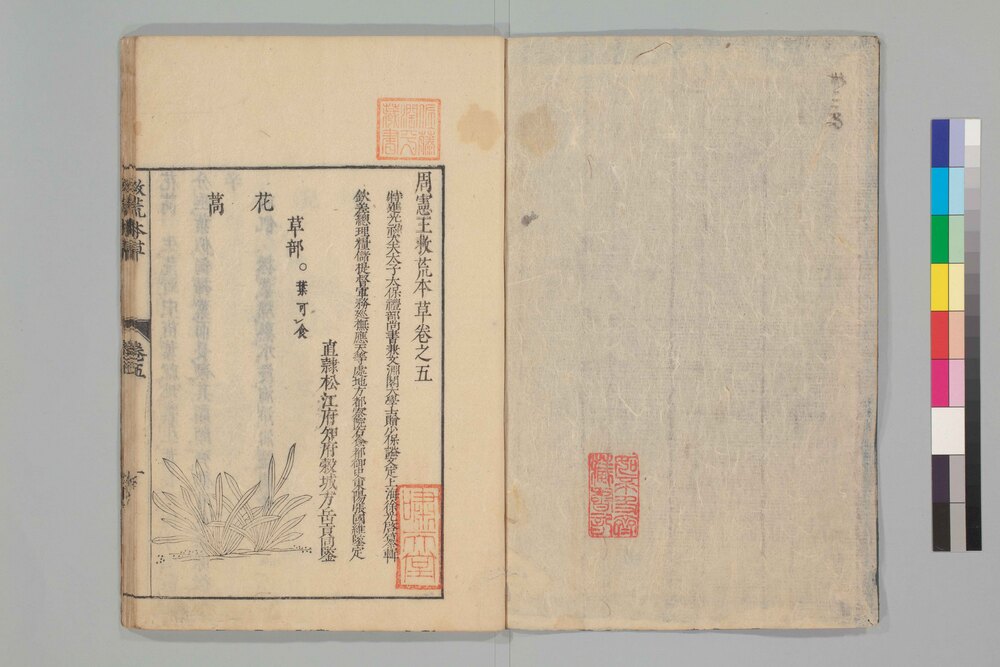 周憲王救荒本草卷之五
特進光祿大夫太子太保禮部尚書兼文淵閣大學士贈少保諡文定上海徐光啓纂輯
欽差總理糧儲提督軍務巡撫應天等處地方都察院右僉都御史東陽張國維鑒定
直隸松江府知府穀城方岳貢同鑒
草部。葉可食
花
蒿
救荒本草
卷五